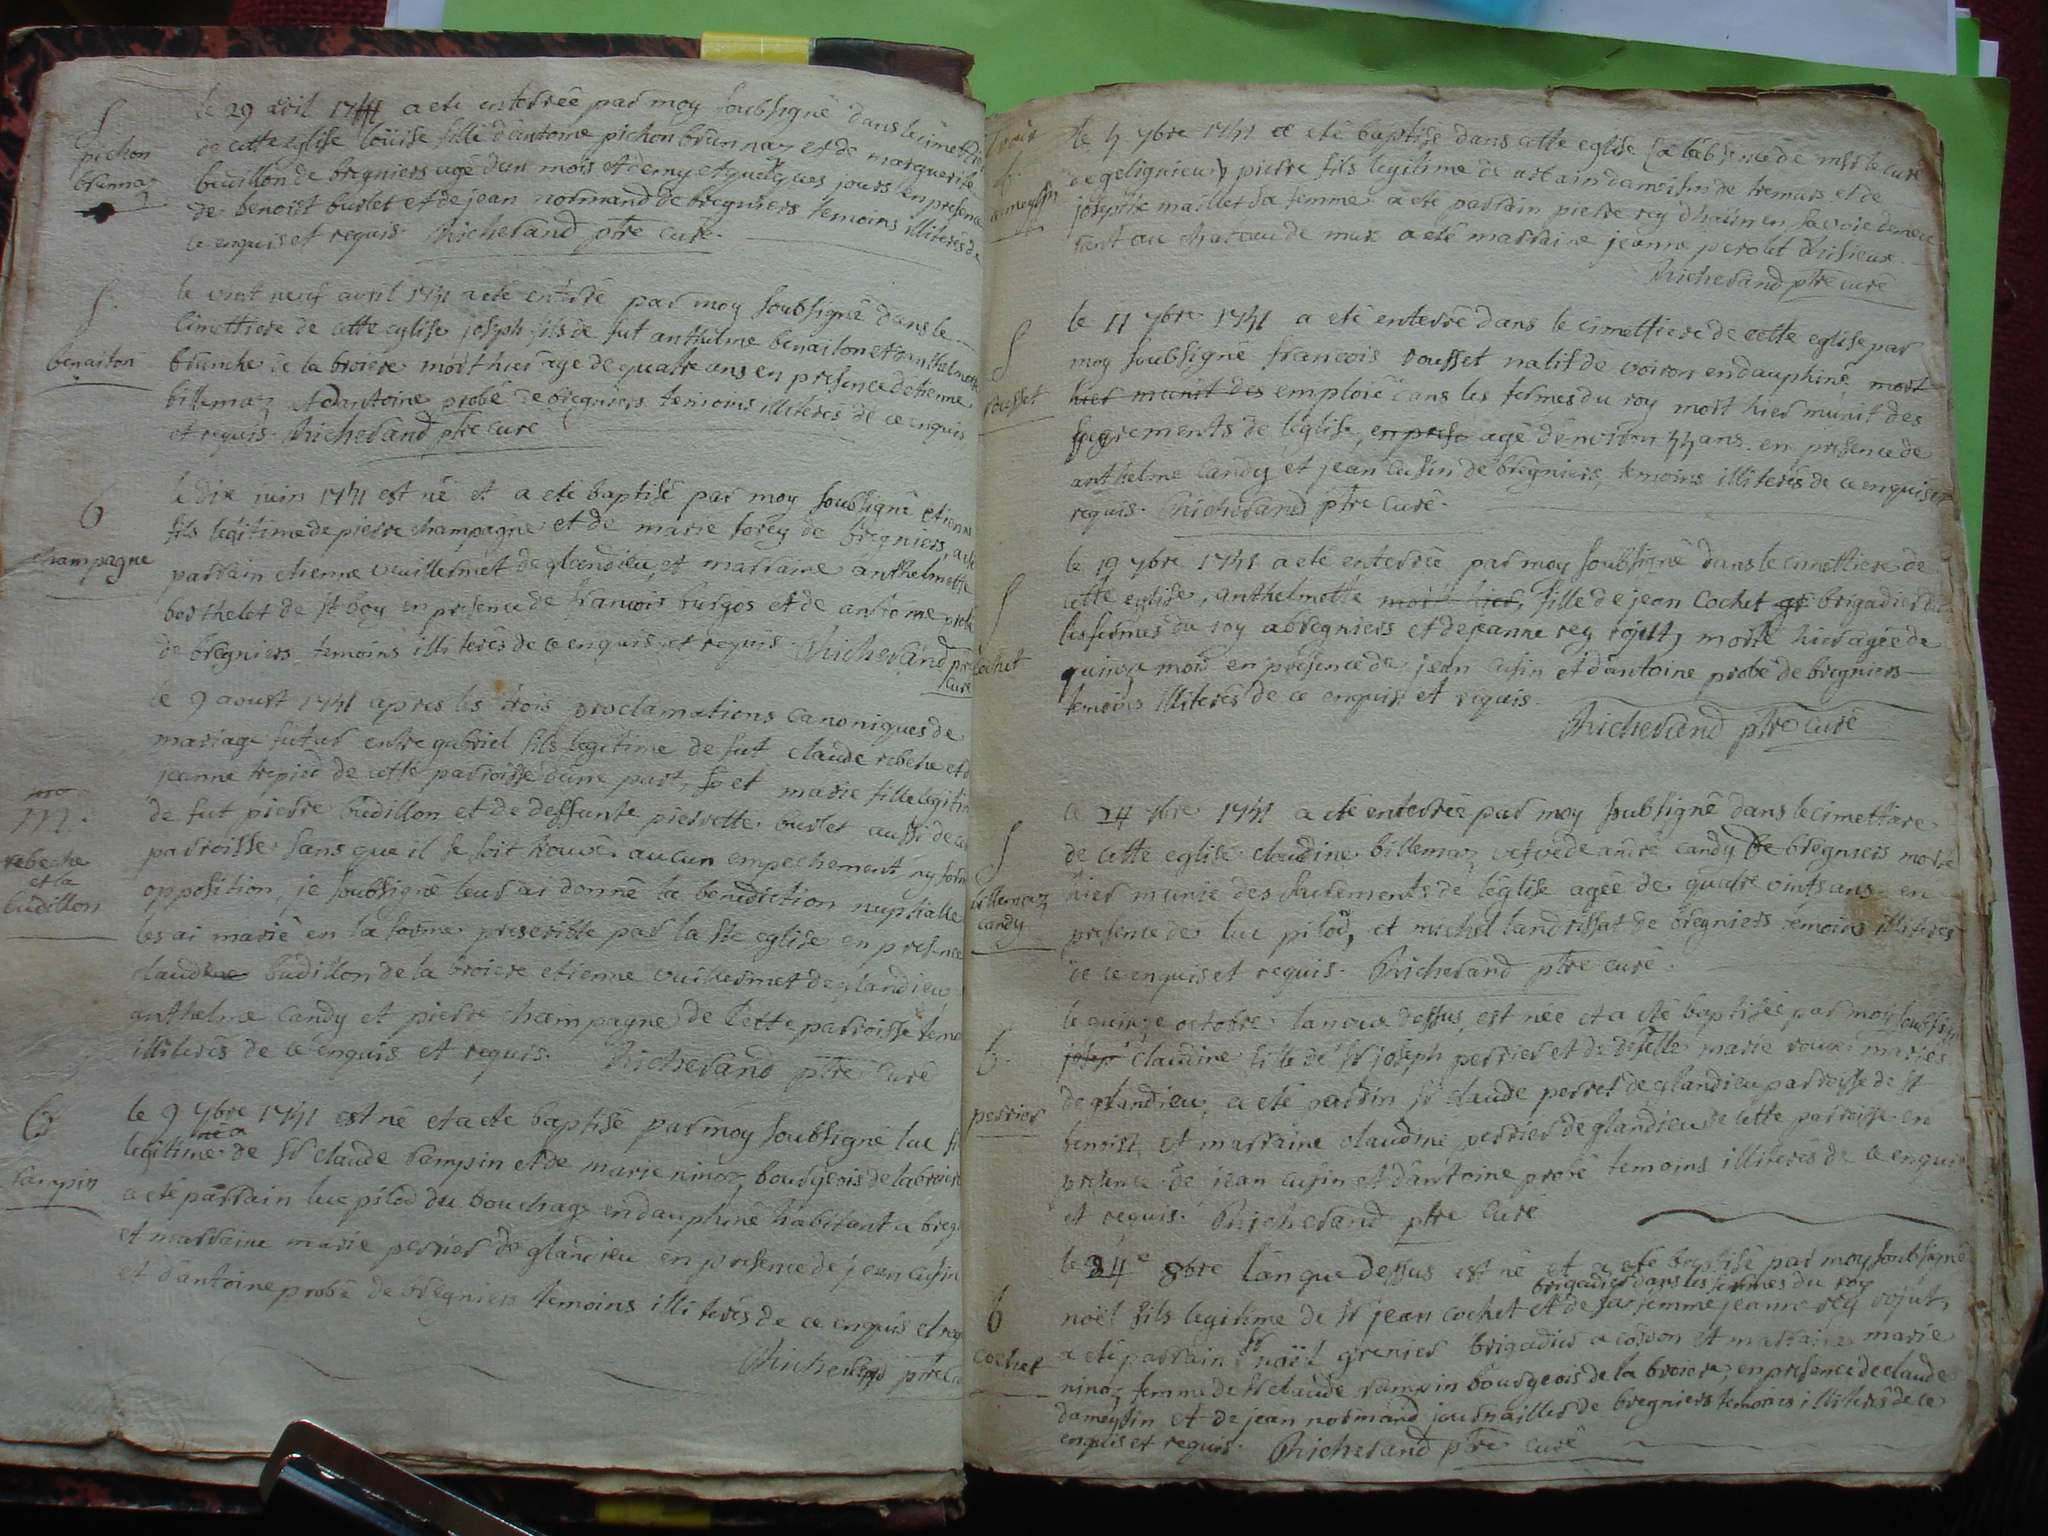 S
pichon
brunnaz
le 29 avril 1741 a eté enterrée par moy soubsigné dans le cimettiere
de cette eglise loüise fille d'antoine pichon brunnaz et de marguerite
budillon de bregniers agé d'un mois et demy et quelques jours en presence
de benoist burlet et de jean normand de bregniers temoins illiterés de
ce enquis et requis. Richerand ptre curé.
S.
benaiton
le vint neuf avril 1741 a eté enterré par moy soubsigné dans le
cimettiere de cette eglise joseph fils de fut anthelme benaiton et d'anthelmette
brunche de la broiere mort hier agé de quatre ans en presence d'etienne
billemaz et d'antoine probé de bregniers temoins illiterés de ce enquis
et requis. Richerand ptre curé
b
champagne
le dix juin 1741 est né et a eté baptisé par moy soubsigné etienne
fils légitime de pierre champagne et de marie forey de bregniers, a eté
parrain etienne vuillermet de glandieu et marraine anthelmette
berthelet de st boy en presence de francois burgos et de antoine probé
de bregniers temoins illiterés de ce enquis et requis Richerand ptre
curé
m.
rebeche
et la
budillon
le 9 aoust 1741 apres les trois proclamations canoniques de
mariage futur entre gabriel fils legitime de fut claude rebehe et de
jeanne trepied de cette parroisse d'une part, et marie fille legitime
de fut pierre budillon et de deffunte pierrette burlet aussi de cette
parroisse sans que il se soit trouvé aucun empechement ny form
opposition, je soubsigné leur ai donné la benediction nuptialle
les ai marié en la forme prescritte par la ste eglise en presence
claudine budillon de la broiere etienne vuillermet de glandieu
anthelme candy et pierre champagne de cette parroisse temo
illiterés de ce enquis et requis. Richerand ptre curé
b
rampin
le 9 7bre 1741 est né et a eté baptisé par moy soubsigné luc fi
legitime de sr claude rampin et de marie ninoz bourgeois de la broiere
a eté parrain luc pilod du bouchage en dauphiné habitant a bregn
et marraine marie perrier de glandieu en presence de jean cusin
et d'antoine probé de bregniers temoins illiterés de ce enquis et req
Richerand ptre cu
b.
dameysin
le 4 7bre 1741 a eté baptisé dans cette eglise (a l'absence de msr le curé
de gelignieu) pierre fils legitime de dameisin de tremurs et de
josephte maillet sa femme a eté parrain pierre rey d'halin en savoie demeu
rant au chateau de mur a eté marraine jeanne perolet d'isieux
Richerand ptre curé
S
rousset
le 11 7bre 1741 a eté enterré dans le cimettiere de cette eglise par
moy soubsigné francois rousset natif de voiron en dauphiné mort
hier munit des emploié dans les fermes du roy mort hier munit des
sacrements de l'église, en prese agé d'environ 44 ans en presence de
anthelme candy et jean cusin de bregniers, temoins illiterés de ce enquis et
requis. Richerand ptre curé.
S
cochet
le 19 7bre 1741 a eté enterrée par moy soubsigné dans le cimettiere de
cette eglise, anthelmette mort hier, fille de jean cochet brigadier dans
les fermes du roy a bregniers et de jeanne rey rojut, morte hier agée de
quinze mois en presence de jean cusin et d'antoine probé de bregniers
temoins illiterés de ce enquis et requis.
Richerand ptre curé
S
billemaz
candy
le 24 7bre 1741 a eté enterrée par moy soubsigné dans le cimettiere
de cette eglise claudine billemaz vefve de andré candy de bregniers morte
hier munie des sacrements de l'église agée de quatre vints ans en
presence de luc pilod, et michel landrissat de bregniers temoins illiterés
de ce enquis et requis. Richerand ptre curé.
b.
perrier
le quinze octobre l'an que dessus est née et a eté baptisée par moy soubsigné
josep claudine fille de sr joseph perrier et de deselle marie roux mariés
de glandieu, a eté parrin sr claude perret de glandieu parroisse de st
benoist et marraine claudine perrier de glandieu de cette parroisse en
presence de jean cusin et d'antoine probé temoins illiterés de ce enquis
et requis. Richerand ptre curé
b
cochet
le 24e 8bre l'an que dessus est né et a eté baptisé par moy soubsigné
brigadier dans les fermes du roy
noël fils legitime de sr jean cochet et de sa femme jeanne rey rojut,
a eté parrain sr noël grenier brigadier a cordon et marraine marie
ninoz femme de sr claude rampin bourgeois de la broiere, en presence de claude
dameysin et de jean normand journaillier de bregniers temoins illiterés de ce
enquis et requis. Richerand ptre curé